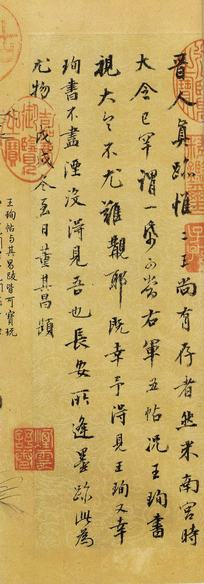 晉人真跡惟 尚有存者然米南宮時
大令已罕謂一紙可當右軍五帖況王珣書
視大令不尤難覯耶既幸予得見王珣又幸
珣書不盡湮沒得見吾也長安所逢墨跡此為
尤物 戊戌冬至日董其昌題